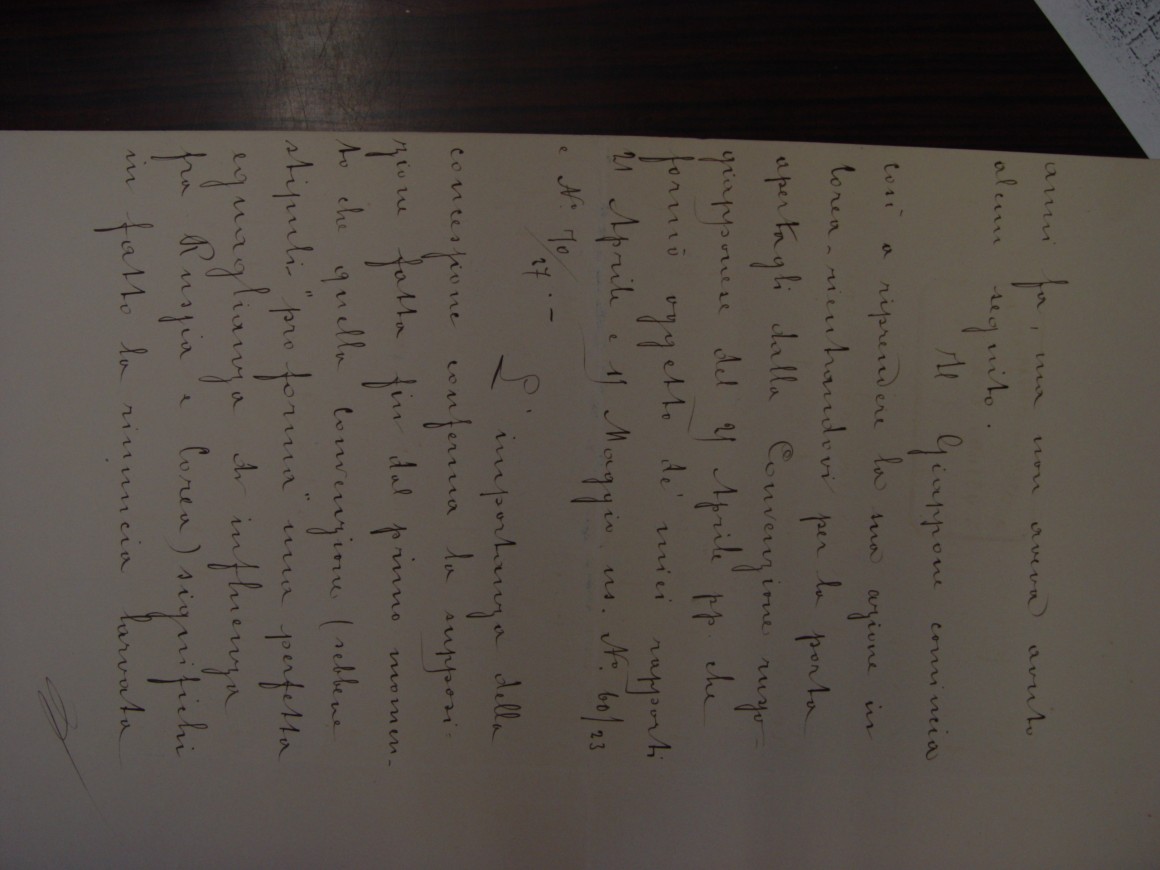 anni fa, ma non aveva avuto
alcun seguito.
Il Giappone comincia
così a riprendere la sua azione in
Corea - rientrandovi per la porta
apertagli dalla Convenzione russo-
giapponese del 25 Aprile pp. che
formò oggetto de' miei rapporti
21 Aprile e 15 Maggio us. No. 60/23
e No. 70/27. -
L'importanza della
concessione conferma la supposi-
zione fatta fin dal primo momen-
to che quella convenzione (sebbene
stipuli "pro forma" una perfetta
eguaglianza di influenza
fra Russia e Corea) significhi
in fatto la rinuncia larvata